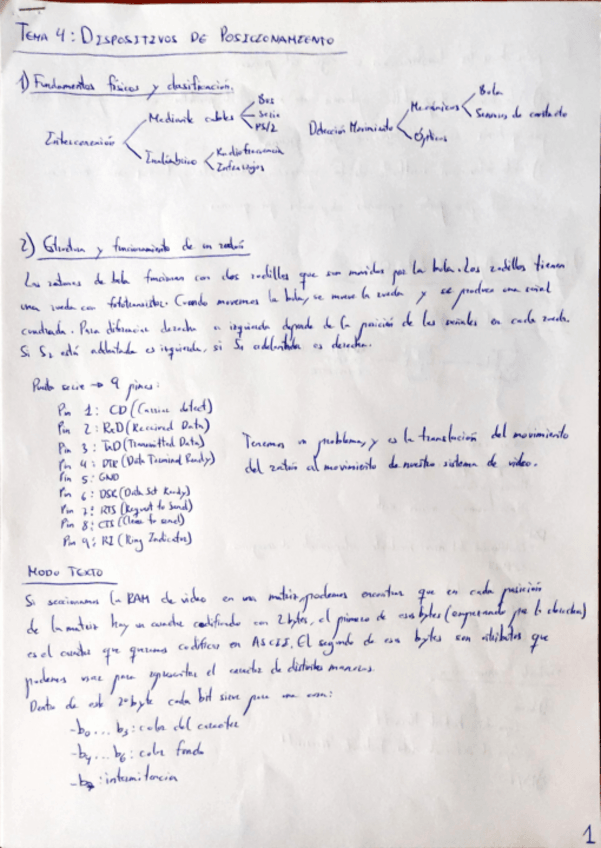 TEMA 4: DISPOSITIVOS DE POSICIONAMIENTO
1) Fundamentos físicos y clasificación.
Interconexión
Mediante cables
Bus
Serie
PS/2
Inalámbrico
Radiofrecuencia
Infrarrojos
Detección Movimiento
Mecánicos
Bola
Sensores de contacto
Ópticos
2) Estructura y funcionamiento de un ratón
Los ratones de bola funcionan con dos rodillos que son movidos por la bola. Los rodillos tienen
una rueda con fototransistor. Cuando movemos la bola, se mueve la rueda y se produce una señal
cuadrada. Para diferenciar derecha o izquierda depende de la posición de las señales en cada rueda.
Si S2 está adelantada es izquierda, si S1 adelantada es derecha.
Puerto serie → 9 pines:
Pin 1: CD (Carrier detect)
Pin 2: RxD (Received Data)
Pin 3: TxD (Transmitted Data)
Pin 4: DTR (Data Terminal Ready)
Pin 5: GND
Pin 6: DSR (Data Set Ready)
Pin 7: RTS (Request to Send)
Pin 8: CTS (Clear to send)
Pin 9: RI (Ring Indicator)
Tenemos un problema, y es la translación del movimiento
del ratón al movimiento de nuestro sistema de video.
MODO TEXTO
Si seccionamos la RAM de video en una matriz, podemos encontrar que en cada posición
de la matriz hay un caracter codificado con 2 bytes, el primero de esos bytes (empezando por la derecha)
es el caracter que queremos codificar en ASCII. El segundo de esos bytes son atributos que
podemos usar para representar el caracter de distintas maneras.
Dentro de este 2º byte cada bit sirve para una cosa:
-b0...b3: color del caracter
-b4...b6: color fondo
-b7: intermitencia
1